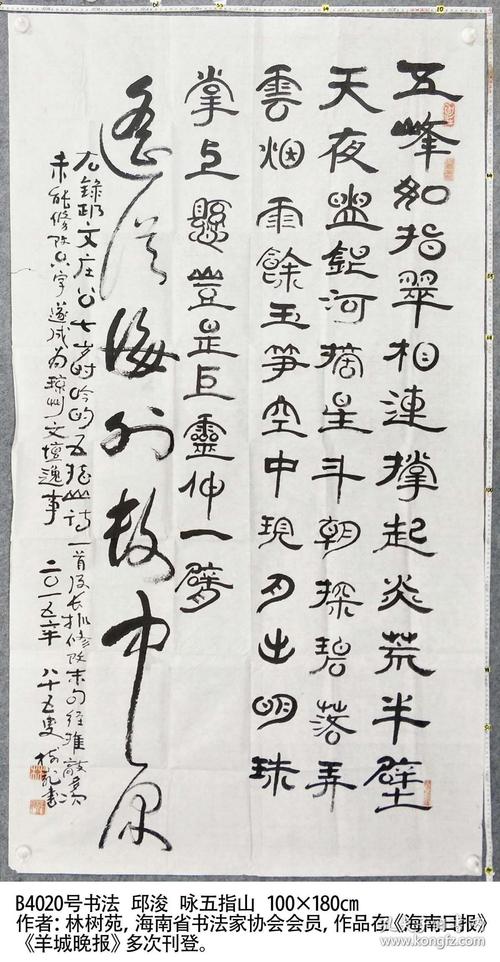 五峰如指翠相連撑起炎荒半壁
天夜盥銀河摘星斗朝探碧落弄
雲烟雨餘玉笋空中現月出明珠
掌上懸豈是巨靈伸一臂
遙從海外数中原
右錄邱文庄公七岁时吟的五指山诗一首及长拟修改末句经推敲竟
未能修改只字遂成为琼州文壇逸事 二〇一五年 八十五叟 树苑書
B4020号书法 邱浚 咏五指山 100×180cm
作者：林树苑，海南省书法家协会会员，作品在《海南日报》
《羊城晚报》多次刊登。